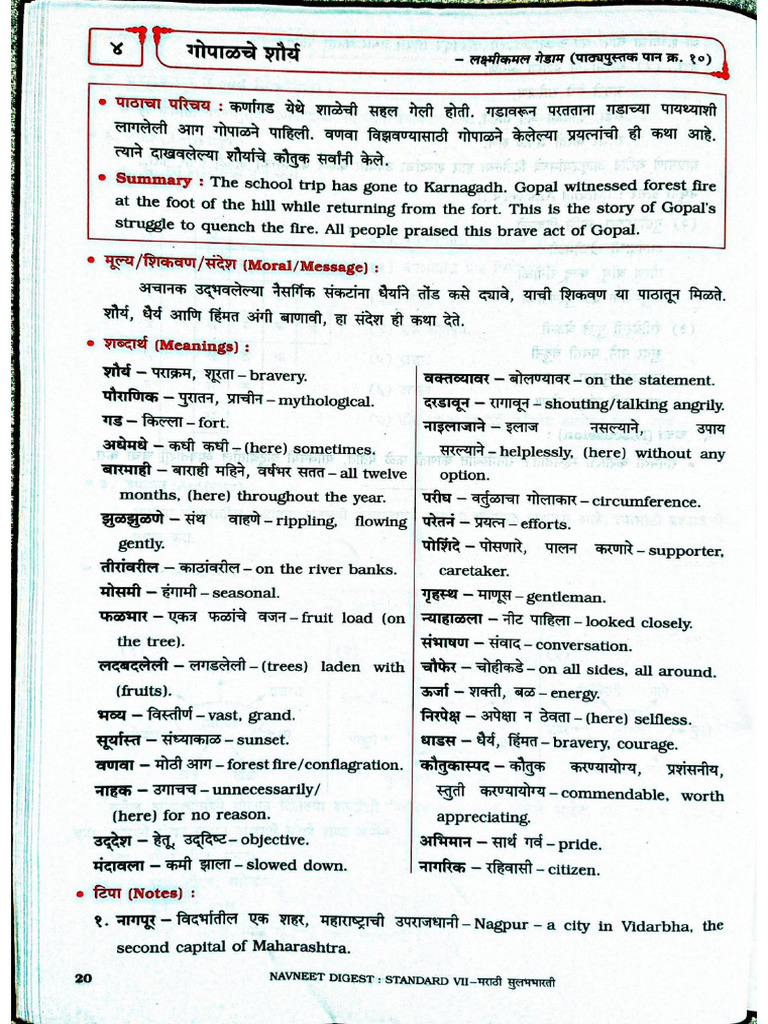 ४
गोपाळचे शौर्य
– लक्ष्मीकमल गेडाम (पाठ्यपुस्तक पान क्र. १०)
• पाठाचा परिचय : कर्णागड येथे शाळेची सहल गेली होती. गडावरून परतताना गडाच्या पायथ्याशी
लागलेली आग गोपाळने पाहिली. वणवा विझवण्यासाठी गोपाळने केलेल्या प्रयत्नांची ही कथा आहे.
त्याने दाखवलेल्या शौर्याचे कौतुक सर्वांनी केले.
• Summary : The school trip has gone to Karnagadh. Gopal witnessed forest fire
at the foot of the hill while returning from the fort. This is the story of Gopal's
struggle to quench the fire. All people praised this brave act of Gopal.
• मूल्य/शिकवण/संदेश (Moral/Message) :
अचानक उद्‌भवलेल्या नैसर्गिक संकटांना धैर्याने तोंड कसे द्यावे, याची शिकवण या पाठातून मिळते.
शौर्य, धैर्य आणि हिंमत अंगी बाणावी, हा संदेश ही कथा देते.
• शब्दार्थ (Meanings) :
शौर्य – पराक्रम, शूरता – bravery.
पौराणिक – पुरातन, प्राचीन – mythological.
गड – किल्ला – fort.
अधेमधे – कधी कधी – (here) sometimes.
बारमाही – बाराही महिने, वर्षभर सतत – all twelve
months, (here) throughout the year.
झुळझुळणे – संथ वाहणे – rippling, flowing
gently.
तीरांवरील – काठांवरील – on the river banks.
मोसमी – हंगामी – seasonal.
फळभार – एकत्र फळांचे वजन – fruit load (on
the tree).
लदबदलेली – लगडलेली – (trees) laden with
(fruits).
भव्य – विस्तीर्ण – vast, grand.
सूर्यास्त – संध्याकाळ – sunset.
वणवा – मोठी आग – forest fire/conflagration.
नाहक – उगाचच – unnecessarily/
(here) for no reason.
उद्देश – हेतू, उद्दिष्ट – objective.
मंदावला – कमी झाला – slowed down.
वक्तव्यावर – बोलण्यावर – on the statement.
दरडावून – रागावून – shouting/talking angrily.
नाइलाजाने – इलाज नसल्याने, उपाय
सरल्याने – helplessly, (here) without any
option.
परीघ – वर्तुळाचा गोलाकार – circumference.
परेतनं – प्रयत्न – efforts.
पोशिंदे – पोसणारे, पालन करणारे – supporter,
caretaker.
गृहस्थ – माणूस – gentleman.
न्याहाळला – नीट पाहिला – looked closely.
संभाषण – संवाद – conversation.
चौफेर – चोहीकडे – on all sides, all around.
ऊर्जा – शक्ती, बळ – energy.
निरपेक्ष – अपेक्षा न ठेवता – (here) selfless.
धाडस – धैर्य, हिंमत – bravery, courage.
कौतुकास्पद – कौतुक करण्यायोग्य, प्रशंसनीय,
स्तुती करण्यायोग्य – commendable, worth
appreciating.
अभिमान – सार्थ गर्व – pride.
नागरिक – रहिवासी – citizen.
• टिपा (Notes) :
१. नागपूर – विदर्भातील एक शहर, महाराष्ट्राची उपराजधानी – Nagpur – a city in Vidarbha, the
second capital of Maharashtra.
20
NAVNEET DIGEST : STANDARD VII – मराठी सुलभभारती